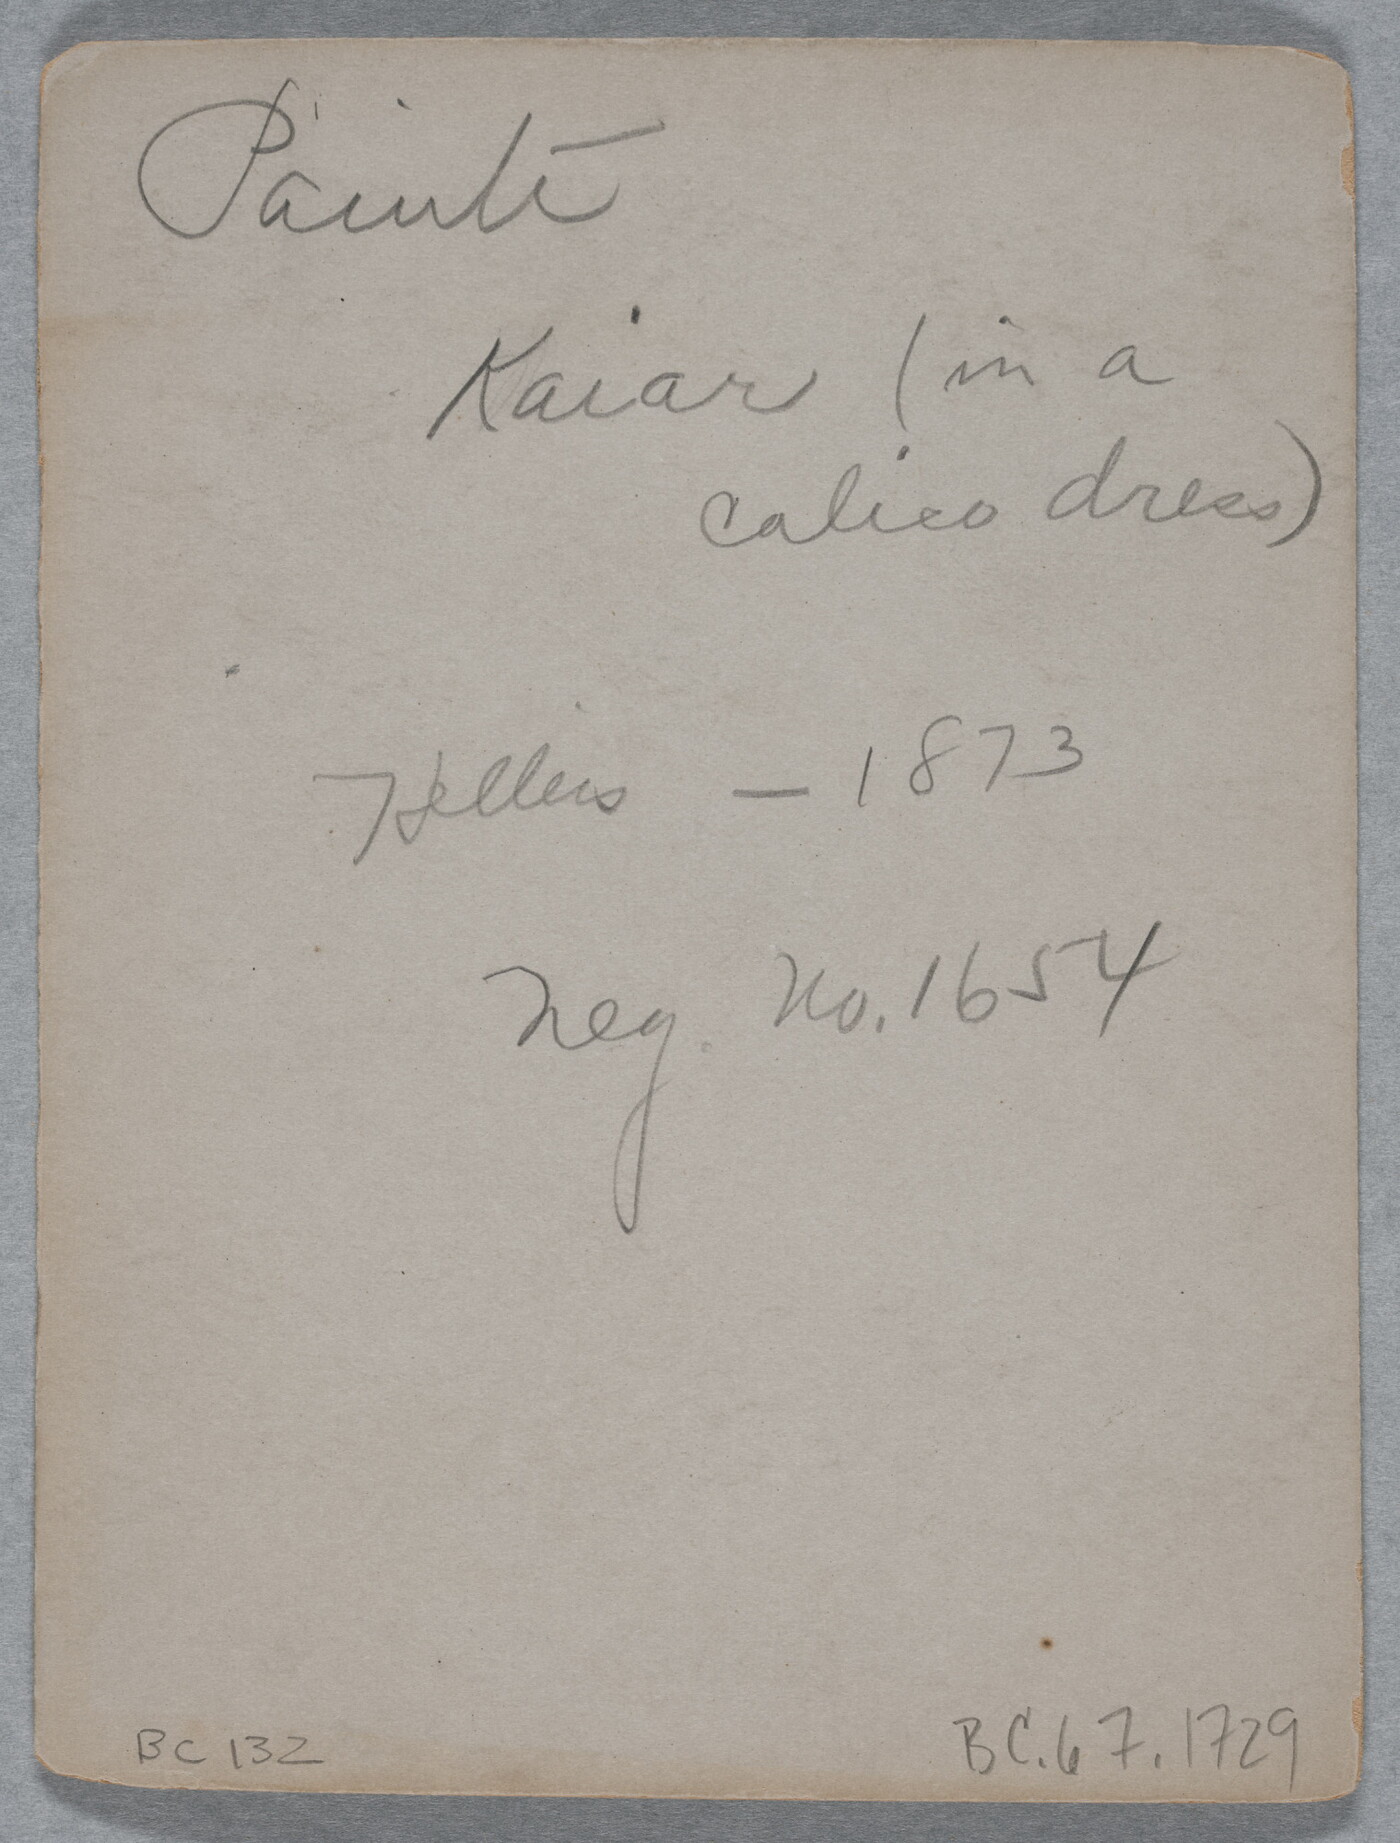 Paiute
Kaiar (in a
calico dress)
Hillers — 1873
Neg. No. 1654
BC 132
BC.67.1729